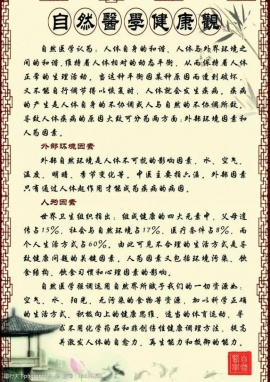 自然醫學健康觀
自然医学认为，人体自身的和谐，人体与外界环境之
间的和谐，维持着人体相对的动态平衡，从而保持着人体
正常的生理活动，当这种平衡因某种原因而遭到破坏，
又不能自行调节得以恢复时，人体就会发生疾病。疾病
的产生是人体自身的不协调或人与自然的不协调所致，
导致人体疾病的原因大致可分为两方面：外部环境因素和
人为因素。
外部环境因素
外部自然环境是人体不可抗的影响因素，水、空气、
温度、明暗、季节变化等。中医主要指六淫。外部因素
只有通过人体起作用才能成为疾病的病因。
人为因素
世界卫生组织指出：组成健康的四大元素中，父母遗
传占15%，社会与自然环境占17%，医疗条件占8%，而
个人生活方式占60%。由此可见不合理的生活方式是导
致健康问题的关键因素。人为因素又包括环境污染、饮
食结构、饮食习惯和心理因素的影响。
自然医学强调运用自然界所赋予我们的一切资源如：
空气、水、阳光、无污染的食物等资源，加以科学正确
的生活方式、积极向上的健康思维、适当的体育运动，寻
求不用化学药品和非创伤性健康调理方法，提高
并激发人体的自愈力、再生能力和抵御的能力。